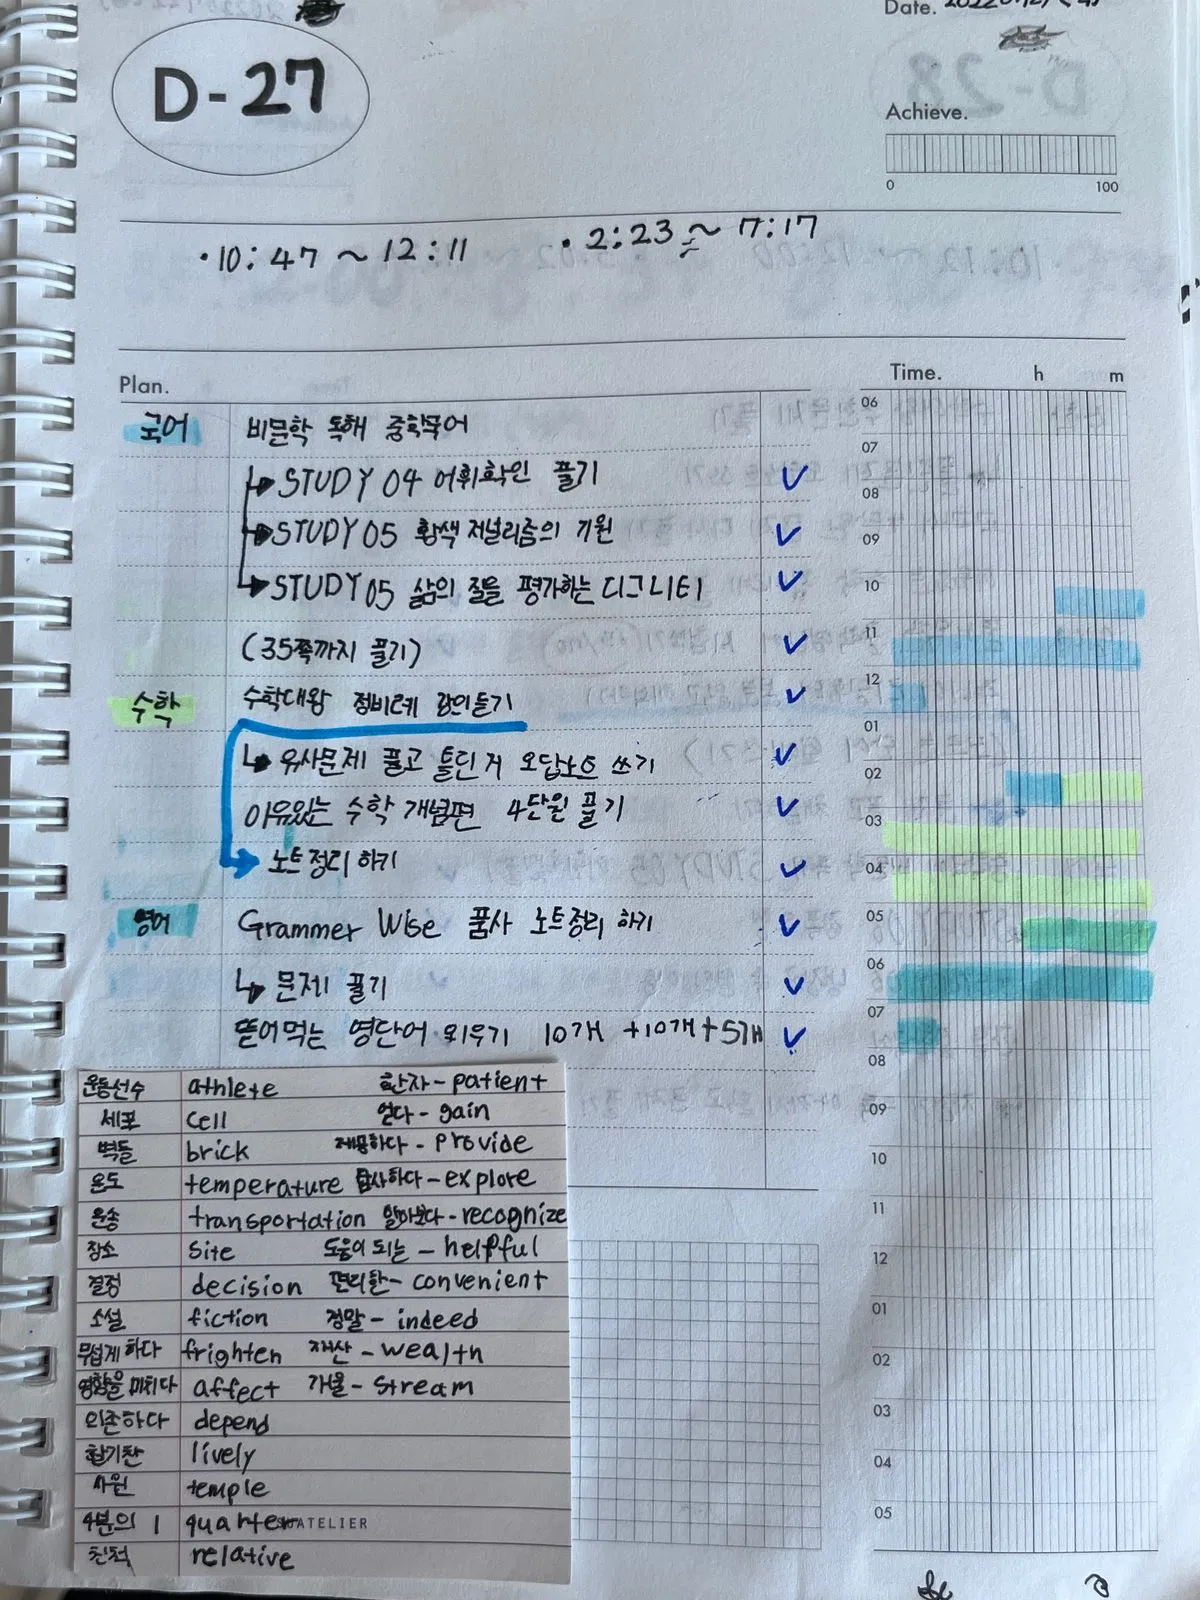 Date.
D-27
Achieve.
0 100
·10:47 ~ 12:11 ·2:23 ~ 7:17
Plan.
Time. h m
국어 비문학 독해 중학국어
STUDY 04 어휘확인 풀기
STUDY 05 황색 저널리즘의 기원
STUDY 05 삶의 질을 평가하는 디그니티
(35쪽까지 풀기)
수학 수학대왕 정비례 강의듣기
유사문제 풀고 틀린거 오답노트 쓰기
이유있는 수학 개념편 4단원 풀기
노트정리 하기
영어 Grammer Wise 품사 노트정리 하기
문제 풀기
뜯어먹는 영단어 외우기 10개 +10개+5개
06
07
08
09
10
11
12
01
02
03
04
05
06
07
08
09
10
11
12
01
02
03
04
05
운동선수 athlete 환자-patient
세포 cell 얻다-gain
벽돌 brick 제공하다-provide
온도 temperature 탐사하다-explore
운송 transportation 알아보다-recognize
장소 site 도움이 되는-helpful
결정 decision 편리한-convenient
소설 fiction 정말-indeed
무섭게 하다 frighten 재산-wealth
영향을 미치다 affect 개울-stream
의존하다 depend
활기찬 lively
사원 temple
4분의 1 quarter
ATELIER
친척 relative